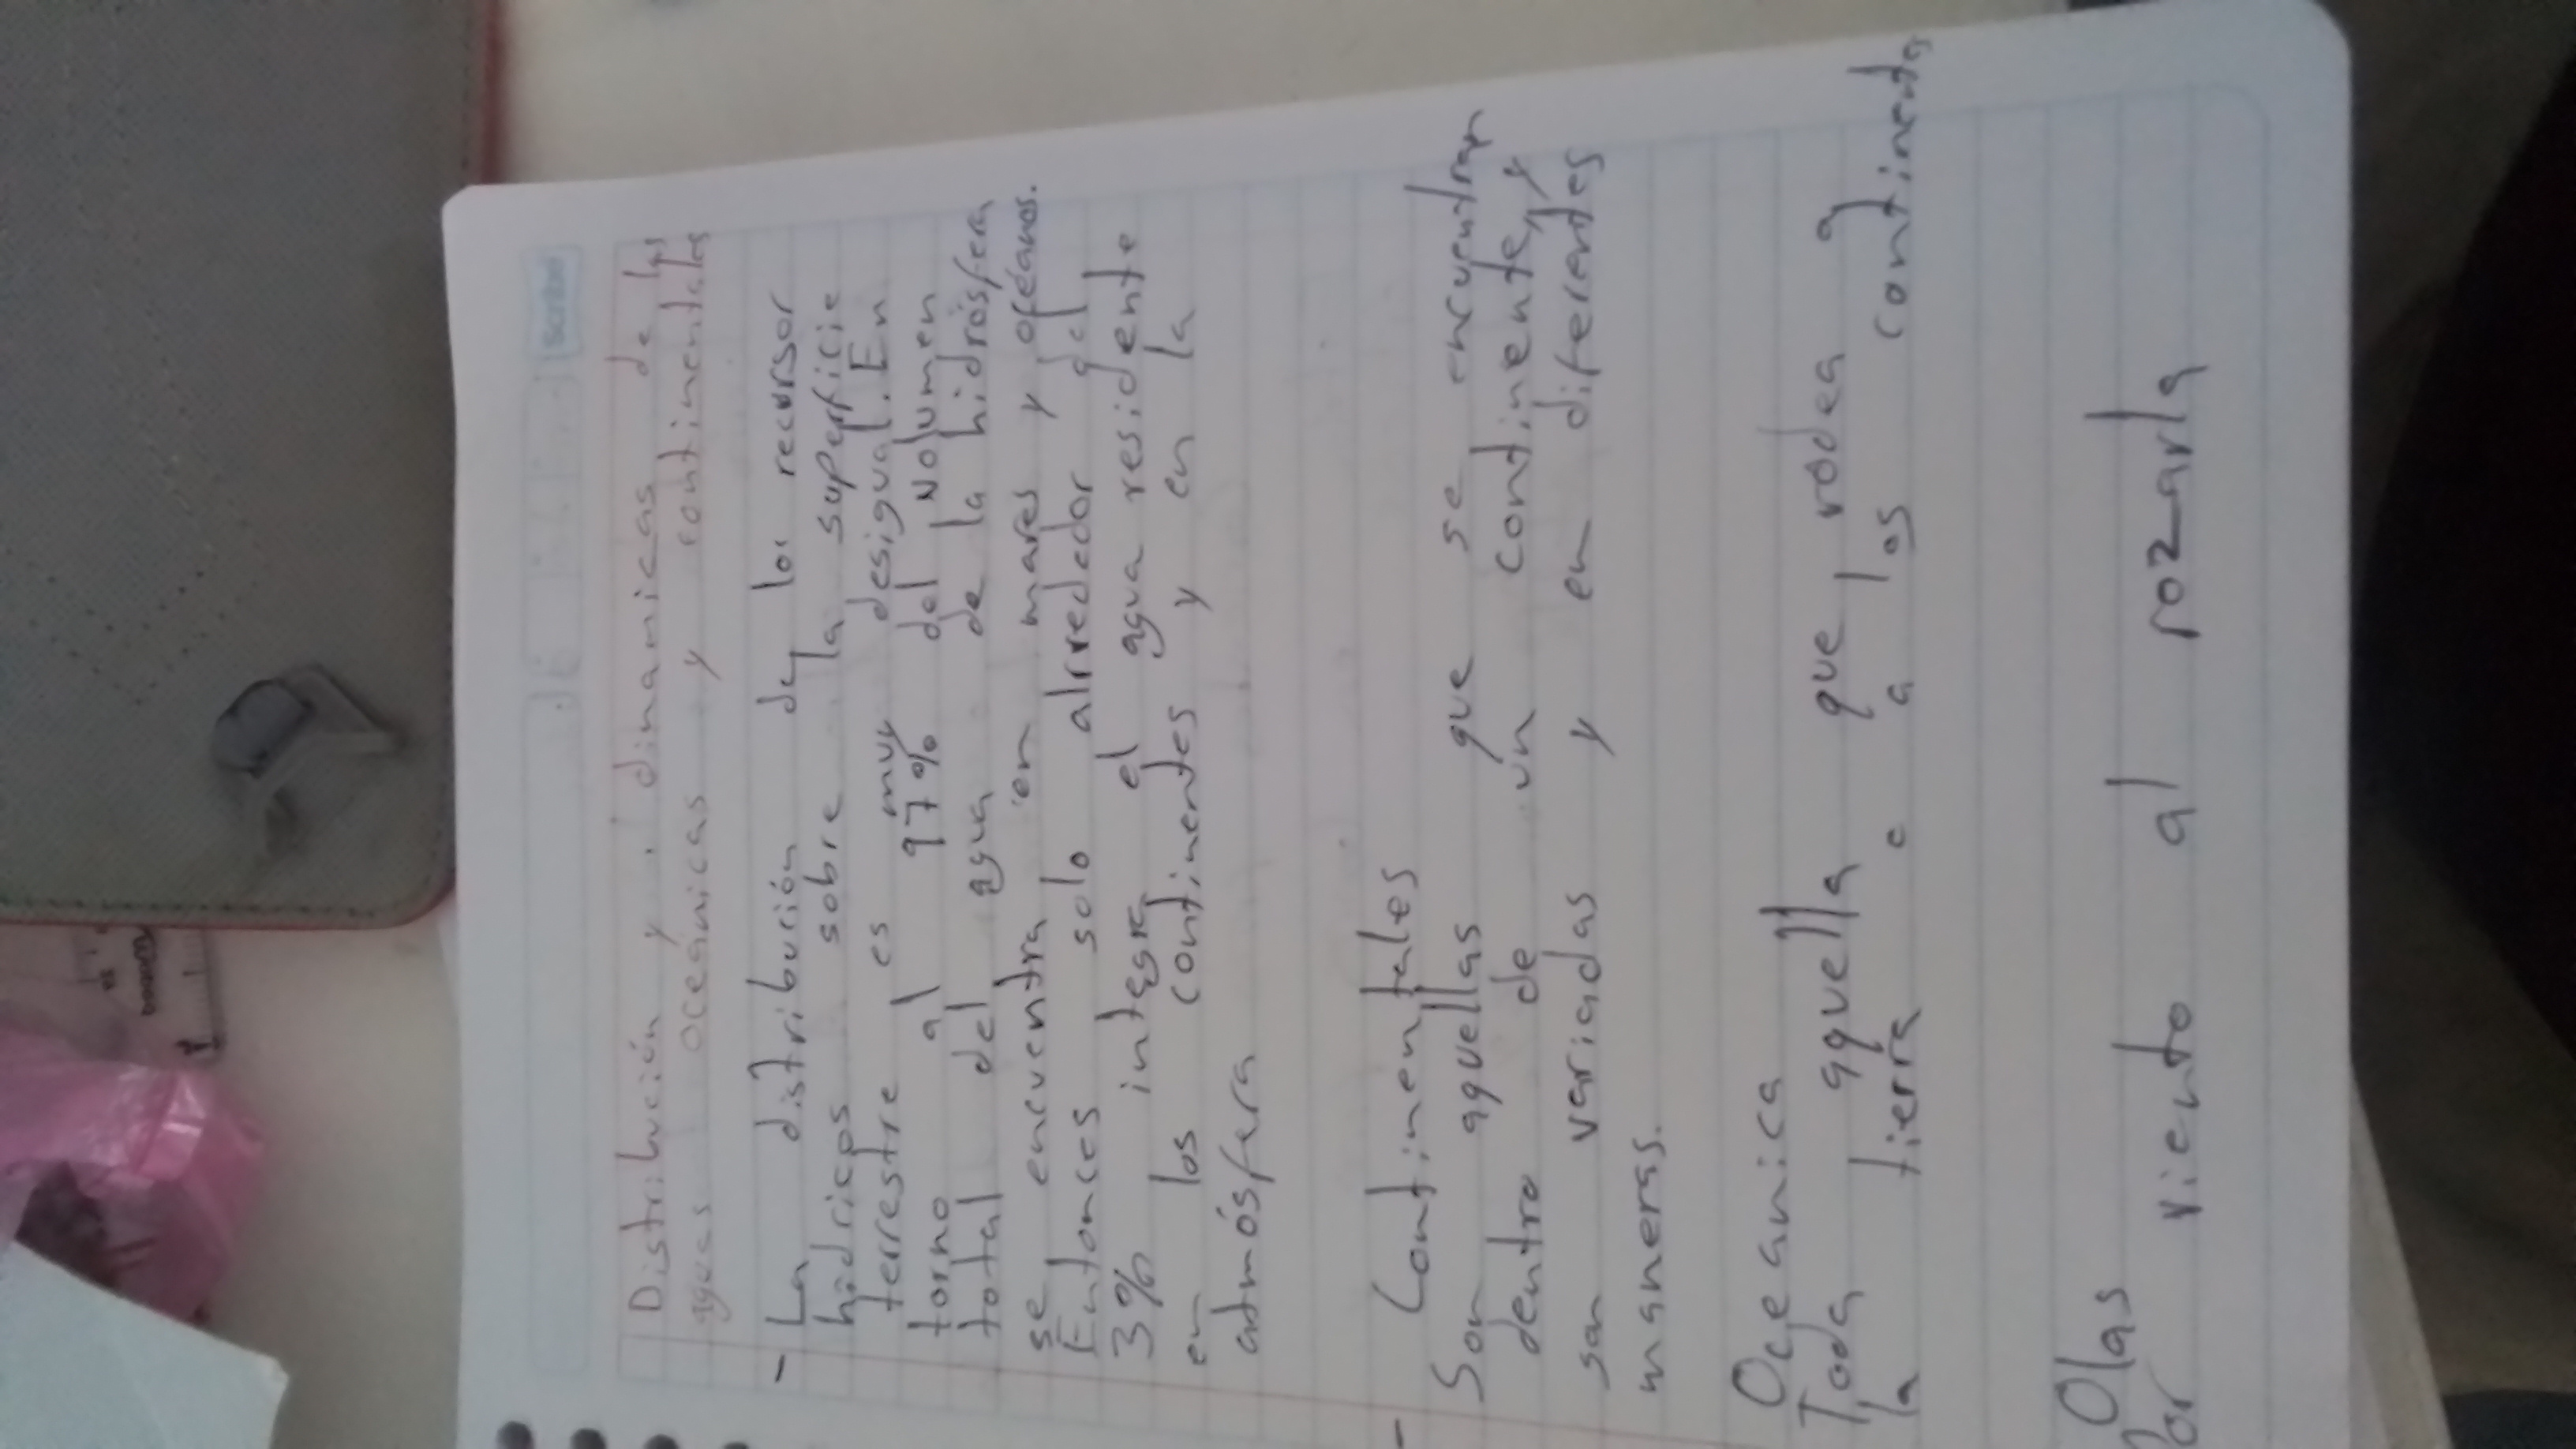 Scribe
Distribución y dinamicas de las
aguas oceánicas y continentales
- La distribución de los recursos
hídricos sobre la superficie
terrestre es muy desigual. En
torno al 97% del Nolumen
total del agua de la hidrósfera
se encuentra en mares y océanos.
Entonces solo alrredector del
3% integra el agua residente
en los continentes y en la
atmósfera
- Continentales
Son aquellas que se encuentran
dentro de un continente, y
son variadas y en diferentes
maneras.
Oceanica
Toda aquella que rodea a
la tierra e a los continentes
Olas
Por viento al rozarla